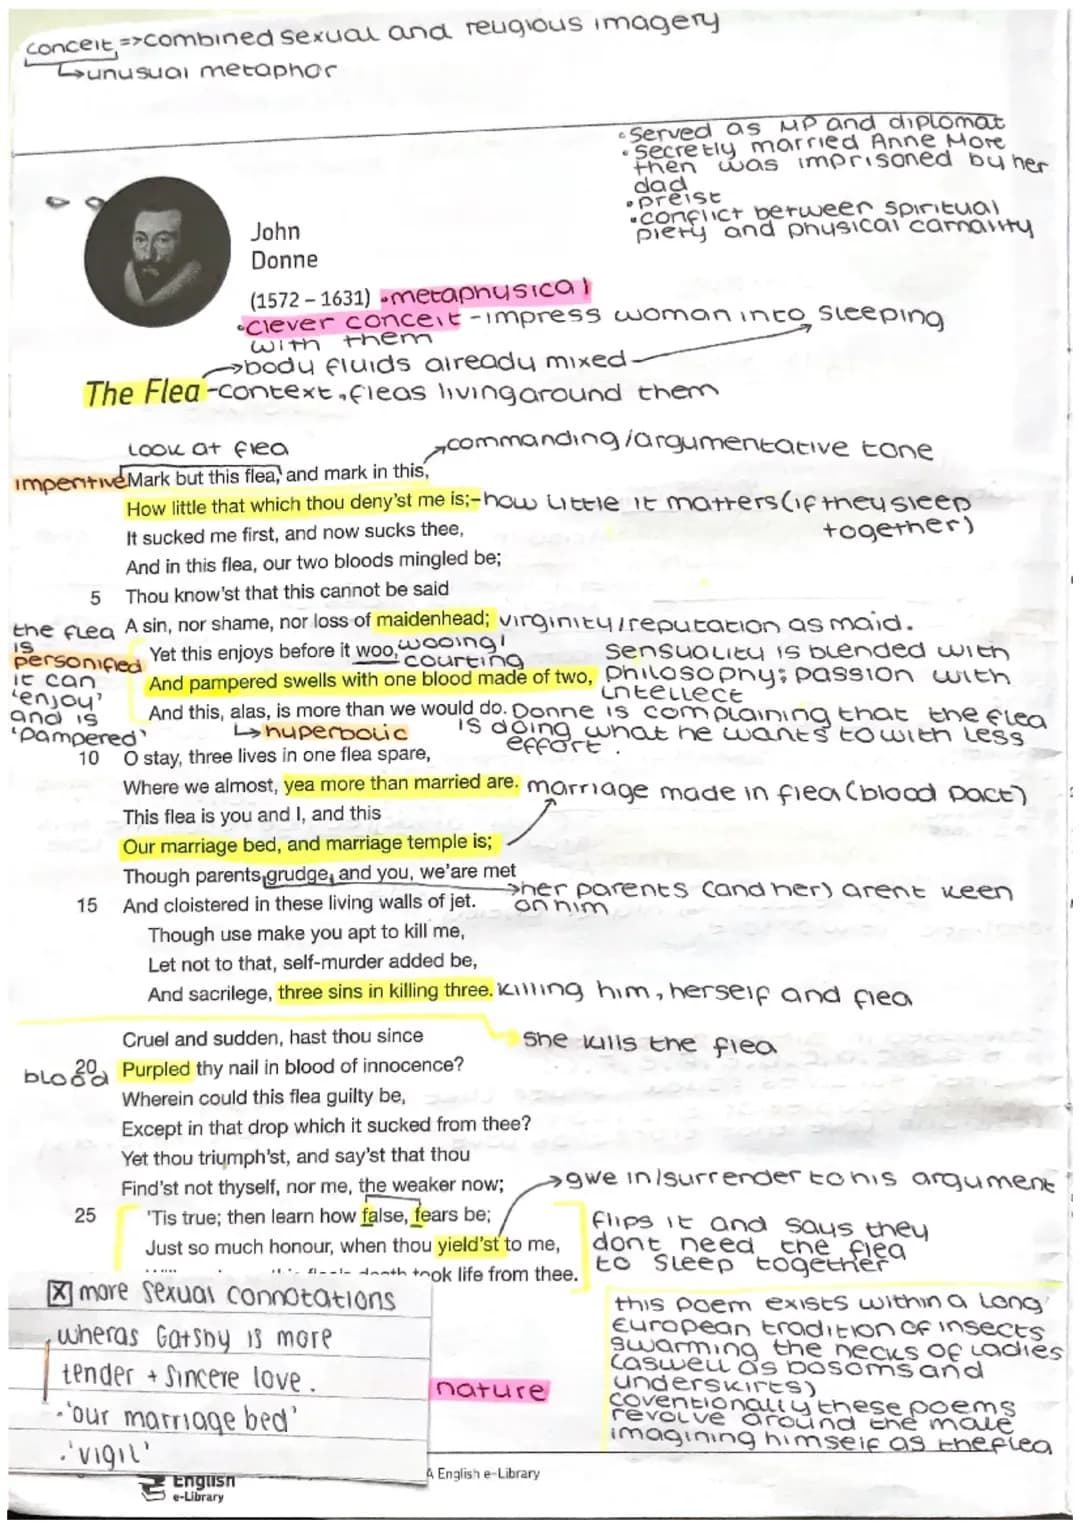 conceit => combined sexual and religious imagery
↳unusual metaphor
• Served as MP and diplomat
• secretly married Anne More
then was imprisoned by her
dad
• preist
• conflict between spiritual
piety and physical carnality
John
Donne
(1572 – 1631) •metaphysical
•clever conceit - impress woman into sleeping
with them
→body fluids already mixed
The Flea -context, fleas living around them
LOOK at flea
commanding/argumentative tone
impertive Mark but this flea, and mark in this,
How little that which thou deny'st me is; -how little it matters (if they sleep
together)
It sucked me first, and now sucks thee,
And in this flea, our two bloods mingled be;
5 Thou know'st that this cannot be said
A sin, nor shame, nor loss of maidenhead; virginity/reputation as maid.
the flea
is
personified
it can
'enjoy'
and is
'pampered'
Yet this enjoys before it woo, wooing/
courting
And pampered swells with one blood made of two,
And this, alas, is more than we would do.
sensuality is blended with
philosophy; passion with
intellect
Donne is complaining that the flea
is doing what he wants to with less
effort.
↳hyperbolic
10 O stay, three lives in one flea spare,
Where we almost, yea more than married are. marriage made in flea (blood pact)
This flea is you and I, and this
Our marriage bed, and marriage temple is;
Though parents grudge, and you, we'are met
→her parents (and her) arent keen
on him
15 And cloistered in these living walls of jet.
Though use make you apt to kill me,
Let not to that, self-murder added be,
And sacrilege, three sins in killing three. killing him, herself and flea
Cruel and sudden, hast thou since
she kills the flea
20 Purpled thy nail in blood of innocence?
blood
Wherein could this flea guilty be,
Except in that drop which it sucked from thee?
Yet thou triumph'st, and say'st that thou
Find'st not thyself, nor me, the weaker now;
→give in/surrender to his argument
25 'Tis true; then learn how false, fears be;
Just so much honour, when thou yield'st to me,
death took life from thee.
flips it and says they
dont need the flea
to sleep together
☒ more sexual connotations
wheras Gatsby is more
tender + sincere love.
·'our marriage bed'
·'vigil'
nature
this poem exists within a long
European tradition of insects
swarming the necks of ladies
(aswell as bosoms and
underskirts)
coventionally these poems
revolve around the male
imagining himself as the flea
A English e-Library
English
e-Library